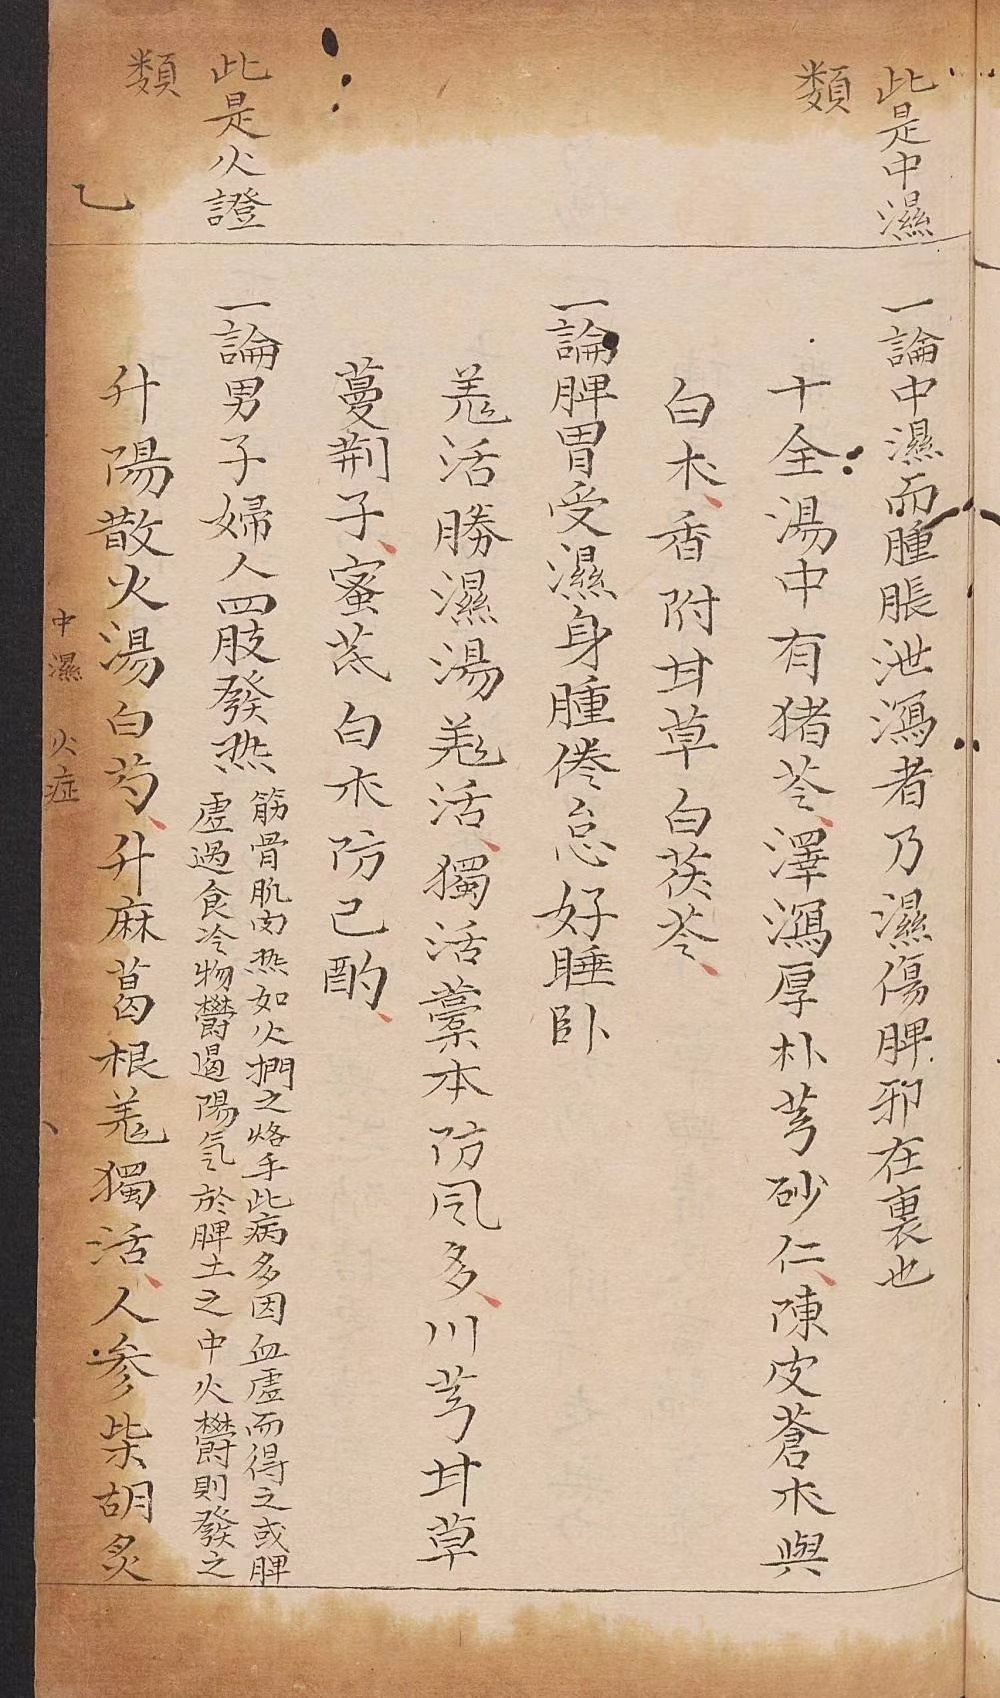 此是中濕
類
一論中濕而腫脹泄瀉者乃濕傷脾邪在裏也
十全湯中有猪苓澤瀉厚朴芎砂仁陳皮蒼朮與
白朮香附甘草白茯苓
一論脾胃受濕身腫倦怠好睡卧
羗活勝濕湯羗活獨活藁本防风多川芎甘草
蔓荆子蜜芪白朮防己酌
此是火證
類
一論男子婦人四肢發热
筋骨肌肉热如火捫之烙手此病多因血虛而得之或脾
虛過食冷物欝遏陽氣於脾土之中火欝則發之
升陽散火湯白芍升麻葛根羗獨活人参柴胡炙
乙
中濕 火症